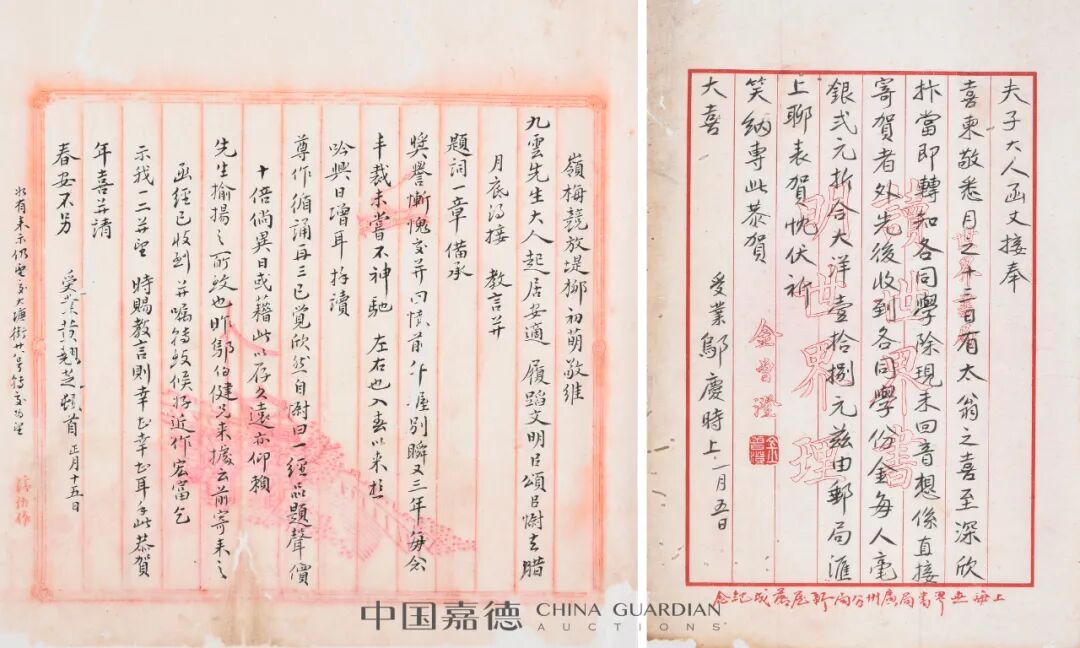 嶺梅競放堤柳初萌敬維
九雲先生大人起居安適履蹈文明曰頌曰慰去腊
月底得接 教言并
題詞一章備承
獎譽慚愧交并回憶前年握別瞬又三年每念
丰裁未嘗不神馳左右也入春以來想
吟興日增耳捧讀
尊作循誦再三已覺欣然自慰曰一經品題聲價
十倍倘異日或藉此以存久遠亦仰賴
先生揄揚之所致也昨鄔伯健兄來據云前寄来之
函經已收到并囑特致候好近作宏富乞
示我一二并望 時賜教言則幸甚幸甚耳手此恭賀
年喜并請
春安不另 受業黃翹芝頓首 正月十五日
如有来示仍望交大塘街廿八号轉交為望
夫子大人函丈接奉
喜柬敬悉月之十二日有太翁之喜至深欣
抃當即轉知各同學除現未回音想係直接
寄賀者外先後收到各同學份金每人毫
銀弍元折合大洋壹拾捌元兹由郵局滙
上聊表賀忱伏祈
笑納專此恭賀
大喜 受業鄔慶時上 一月五日
讀世界書
明世界理
金曾澄
上海世界書局廣州分局新屋落成紀念
中国嘉德 CHINA GUARDIAN
AUCTIONS